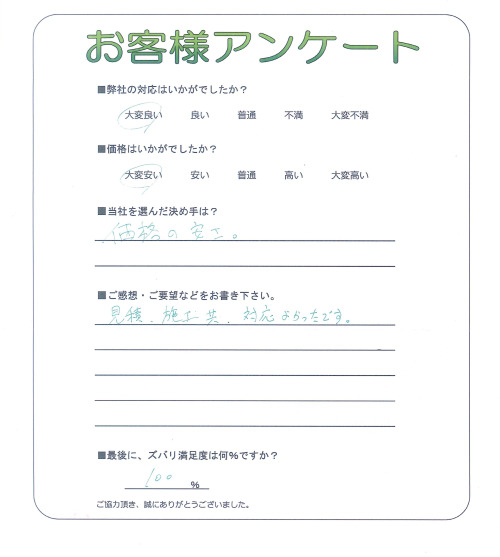 お客様アンケート
■弊社の対応はいかがでしたか？
大変良い 良い 普通 不満 大変不満
■価格はいかがでしたか？
大変安い 安い 普通 高い 大変高い
■当社を選んだ決め手は？
価格の安さ。
■ご感想・ご要望などをお書き下さい。
見積、施工共、対応よかったです。
■最後に、ズバリ満足度は何%ですか？
100 %
ご協力頂き、誠にありがとうございました。